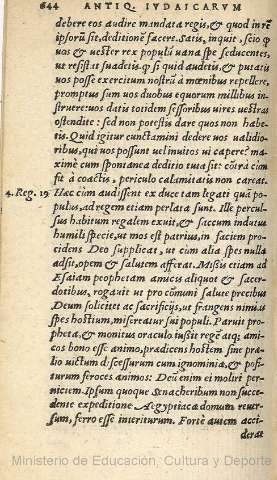 644 ANTIQ. IVDAICARVM
debere eos audire mandata regis, & quod in rē
ipsorū sit, deditionē facere. Satis, inquit, scio q̄
vos & vester rex populū vana spe seducentes,
ut resistat suadetis: q̄ si quid audetis, & putatis
vos posse exercitum nostrū à mœnibus repellere,
promptus sum vobis equorum duobus millibus in
struere: vos datis totidem sessoribus vires vestras
ostendite: sed non potestis dare quos non habe-
tis. Quid igitur cunctamini dedere vos validio-
ribus, qui vos possunt vel inuitos vi capere? ma-
ximè cum spontanea deditio tuta sit: cōtrà cùm
fit à coactis, periculo calamitatis non careat.
4. Reg. 19 Hæc cùm audissent ex duce tam legati quā po-
pulus, ad regem etiam perlata sunt. Ille percul-
sus habitum regalem exuit, & saccum indutus
humili specie, ut mos est patrius, in faciem pro-
cidens Deo supplicat, ut cùm alia spes nulla
adsit, opem & salutem afferat. Missis etiam ad
Esaiam prophetam amicis aliquot & sacer-
dotibus, rogauit ut pro cōmuni salute precibus
Deum solicitet ac sacrificijs, ut frangens nimias
spes hostium, misereatur sui populi. Paruit pro-
pheta, & monitus oraculo iussit regē atq; ami-
cos bono esse animo, prædicens hostem sine præ-
lio victum discessurum cum ignominia, & posi-
turum feroces animos: Deū enim ei moliri per-
niciem. Ipsum quoque Senacheribum non succe-
dente expeditione Aegyptiaca domum reuer-
sum, ferro esse interiturum. Fortè autem acci
derat
Ministerio de Educación, Cultura y Deporte